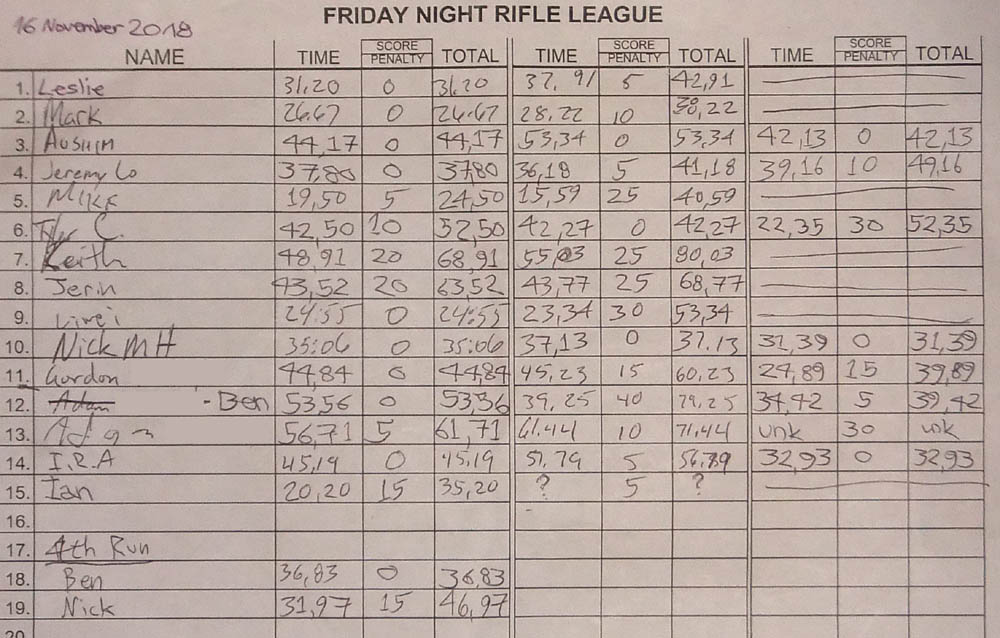 16 November 2018
FRIDAY NIGHT RIFLE LEAGUE
NAME TIME SCORE PENALTY TOTAL TIME SCORE PENALTY TOTAL TIME SCORE PENALTY TOTAL
1. Leslie 31,20 0 31,20 37,91 5 42,91
2. Mark 26.67 0 26.67 28,22 10 38,22
3. 44,17 0 44,17 53,34 0 53,34 42,13 0 42,13
4. Jeremy Lo 37,80 0 37,80 36,18 5 41,18 39,16 10 49,16
5. MIKE 19,50 5 24,50 15,59 25 40,59
6. Tyler C. 42,50 10 52,50 42,27 0 42,27 22,35 30 52,35
7. Keith 48,91 20 68,91 55,03 25 80,03
8. Jerin 43,52 20 63,52 43,77 25 68,77
9. 24:55 0 24:55 23,34 30 53,34
10. Nick MH 35:06 0 35:06 37,13 0 37.13 31,39 0 31,39
11. Gordon 44,84 0 44,84 45,23 15 60,23 24,89 15 39,89
12. Adam - Ben 53,56 0 53,56 39,25 40 79,25 34,42 5 39,42
13. Adam 56,71 5 61,71 61.44 10 71,44 unk 30 unk
14. I.R.A 45,19 0 45,19 51,79 5 56,79 32,93 0 32,93
15. Ian 20,20 15 35,20 ? 5 ?
16.
17. 4th Run
18. Ben 36,83 0 36,83
19. Nick 31,97 15 46,97
20